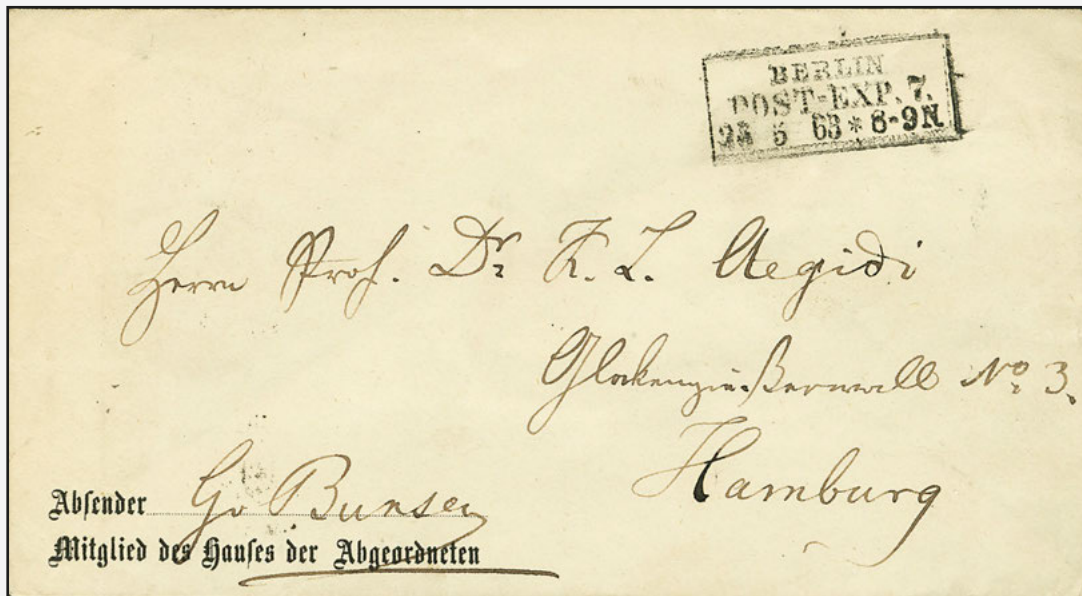 BERLIN
POST-EXP. 7.
5 63 * 8-9N.
Herrn Prof. Dr. K. L. Aegidi
Glockengießerwall No 3.
Hamburg
Absender Gv Bunsen
Mitglied des Hauses der Abgeordneten